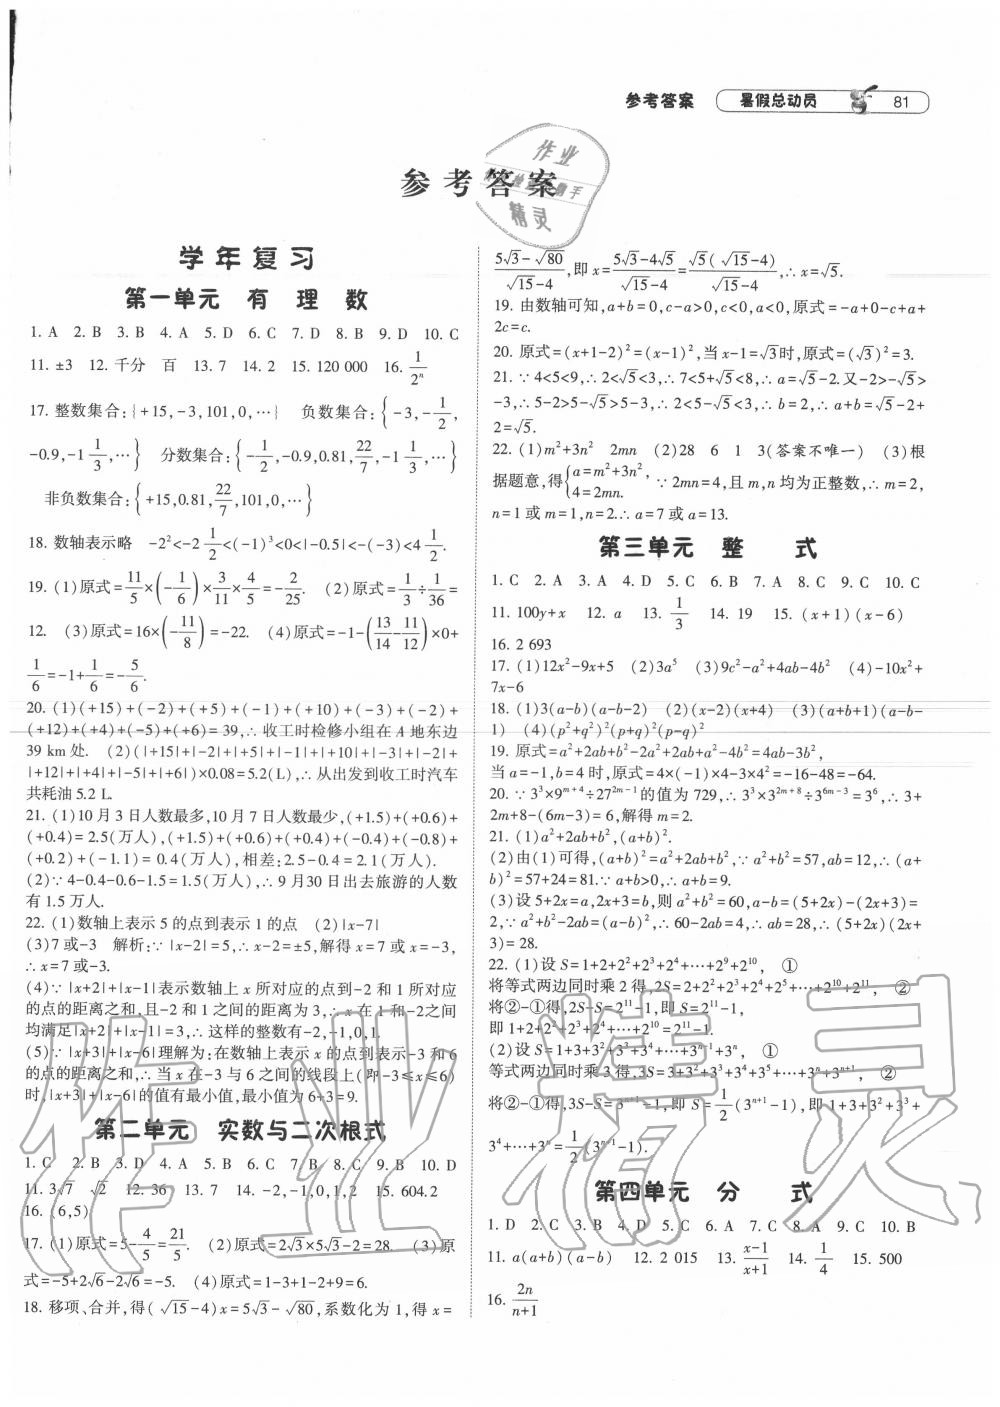 参考答案 暑假总动员 81
参考答案
学年复习
第一单元 有理数
1. A 2. B 3. B 4. A 5. D 6. C 7. D 8. B 9. D 10. C
11. ±3 12. 千分 百 13. 7 14. 2 15. 120 000 16. 1/2ⁿ
17. 整数集合:{+15,-3,101,0,…} 负数集合:{-3,-1/2,
-0.9,-1 1/3,…} 分数集合:{-1/2,-0.9,0.81,22/7,-1 1/3,…}
非负数集合:{+15,0.81,22/7,101,0,…}
18. 数轴表示略 -2²<-2 1/2<(-1)³<0<|-0.5|<-(-3)<4 1/2.
19. (1)原式=11/5×(-1/6)×3/11×4/5=-2/25. (2)原式=1/3÷1/36=
12. (3)原式=16×(-11/8)=-22. (4)原式=-1-(13/14-11/12)×0+
1/6=-1+1/6=-5/6.
20. (1)(+15)+(-2)+(+5)+(-1)+(+10)+(-3)+(-2)+
(+12)+(+4)+(-5)+(+6)=39,∴收工时检修小组在 A 地东边
39 km处. (2)(|+15|+|-2|+|+5|+|-1|+|+10|+|-3|+|-2|+
|+12|+|+4|+|-5|+|+6|)×0.08=5.2(L),∴从出发到收工时汽车
共耗油 5.2 L.
21. (1)10 月 3 日人数最多,10 月 7 日人数最少,(+1.5)+(+0.6)+
(+0.4)=2.5(万人),(+1.5)+(+0.6)+(+0.4)+(-0.4)+(-0.8)+
(+0.2)+(-1.1)=0.4(万人),相差:2.5-0.4=2.1(万人).
(2)∵4-0.4-0.6-1.5=1.5(万人),∴9月30日出去旅游的人数
有 1.5 万人.
22. (1)数轴上表示 5 的点到表示 1 的点 (2)|x-7|
(3)7 或-3 解析:∵|x-2|=5,∴x-2=±5,解得 x=7 或 x=-3,
∴x=7 或-3.
(4)∵|x+2|+|x-1|表示数轴上 x 所对应的点到-2 和 1 所对应
的点的距离之和,且-2 和 1 之间的距离为 3,∴x 在 1 和-2之间
均满足|x+2|+|x-1|=3,∴这样的整数有-2,-1,0,1.
(5)∵|x+3|+|x-6|理解为:在数轴上表示 x 的点到表示-3 和 6
的点的距离之和,∴当 x 在-3 与 6 之间的线段上(即-3≤x≤6)
时,|x+3|+|x-6|的值有最小值,最小值为 6+3=9.
第二单元 实数与二次根式
1. C 2. B 3. D 4. A 5. B 6. C 7. B 8. C 9. B 10. D
11. 3√7 √2 12. 36 13. 7 14. -2,-1,0,1,2 15. 604.2
16. (6,5)
17. (1)原式=5-4/5=21/5. (2)原式=2√3×5√3-2=28. (3)原
式=-5+2√6-2√6=-5. (4)原式=1-3+1-2+9=6.
18. 移项、合并,得(√15-4)x=5√3-√80,系数化为 1,得 x=
(5√3-√80)/(√15-4),即 x=(5√3-4√5)/(√15-4)=√5(√15-4)/(√15-4),∴x=√5.
19. 由数轴可知,a+b=0,c-a>0,c<0,a<0,原式=-a+0-c+a+
2c=c.
20. 原式=(x+1-2)²=(x-1)²,当 x-1=√3时,原式=(√3)²=3.
21. ∵4<5<9,∴2<√5<3,∴7<5+√5<8,∴a=√5-2.又-2>-√5>
-3,∴5-2>5-√5>5-3,∴2<5-√5<3,∴b=2,∴a+b=√5-2+
2=√5.
22. (1)m²+3n² 2mn (2)28 6 1 3(答案不唯一) (3)根
据题意,得{a=m²+3n², 4=2mn. ∵2mn=4,且 m,n 均为正整数,∴m=2,
n=1 或 m=1,n=2.∴a=7 或 a=13.
第三单元 整式
1. C 2. A 3. A 4. D 5. C 6. B 7. A 8. C 9. C 10. C
11. 100y+x 12. a 13. 1/3 14. 19 15. (x+1)(x-6)
16. 2 693
17. (1)12x²-9x+5 (2)3a⁵ (3)9c²-a²+4ab-4b² (4)-10x²+
7x-6
18. (1)3(a-b)(a-b-2) (2)(x-2)(x+4) (3)(a+b+1)(a-b-
1) (4)(p²+q²)²(p+q)²(p-q)²
19. 原式=a²+2ab+b²-2a²+2ab+a²-4b²=4ab-3b²,
当 a=-1,b=4 时,原式=4×(-1)×4-3×4²=-16-48=-64.
20. ∵3³×9ᵐ⁺⁴÷27²ᵐ⁻¹的值为 729,∴3³×3²ᵐ⁺⁸÷3⁶ᵐ⁻³=3⁶,∴3+
2m+8-(6m-3)=6,解得 m=2.
21. (1)a²+2ab+b²,(a+b)².
(2)由(1)可得,(a+b)²=a²+2ab+b²,∵a²+b²=57,ab=12,∴(a+
b)²=57+24=81.∵a+b>0,∴a+b=9.
(3)设 5+2x=a,2x+3=b,则 a²+b²=60,a-b=(5+2x)-(2x+3)=
2,∵a²+b²-2ab=(a-b)²,∴60-2ab=4,∴ab=28,∴(5+2x)(2x+
3)=28.
22. (1)设 S=1+2+2²+2³+2⁴+…+2⁹+2¹⁰, ①
将等式两边同时乘 2 得,2S=2+2²+2³+2⁴+2⁵+…+2¹⁰+2¹¹, ②
将②-①得,2S-S=2¹¹-1,即 S=2¹¹-1,
即 1+2+2²+2³+2⁴+…+2¹⁰=2¹¹-1.
(2)设 S=1+3+3²+3³+3⁴+…+3ⁿ⁻¹+3ⁿ, ①
等式两边同时乘 3 得,3S=3+3²+3³+3⁴+3⁵+…+3ⁿ+3ⁿ⁺¹, ②
将②-①得,3S-S=3ⁿ⁺¹-1,即 S=1/2(3ⁿ⁺¹-1),即 1+3+3²+3³+
3⁴+…+3ⁿ=1/2(3ⁿ⁺¹-1).
第四单元 分式
1. D 2. C 3. B 4. D 5. C 6. A 7. C 8. A 9. C 10. B
11. a(a+b)(a-b) 12. 2 015 13. (x-1)/(x+1) 14. 1/4 15. 500
16. 2n/(n+1)
作业
精灵
作业精灵